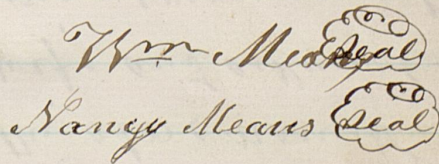 Wm Means seal
Nancy Means seal